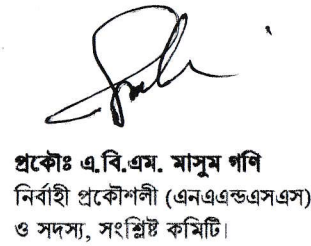 প্রকৌঃ এ.বি.এম. মাসুম গণি
নির্বাহী প্রকৌশলী (এনএএন্ডএসএস)
ও সদস্য, সংশ্লিষ্ট কমিটি।